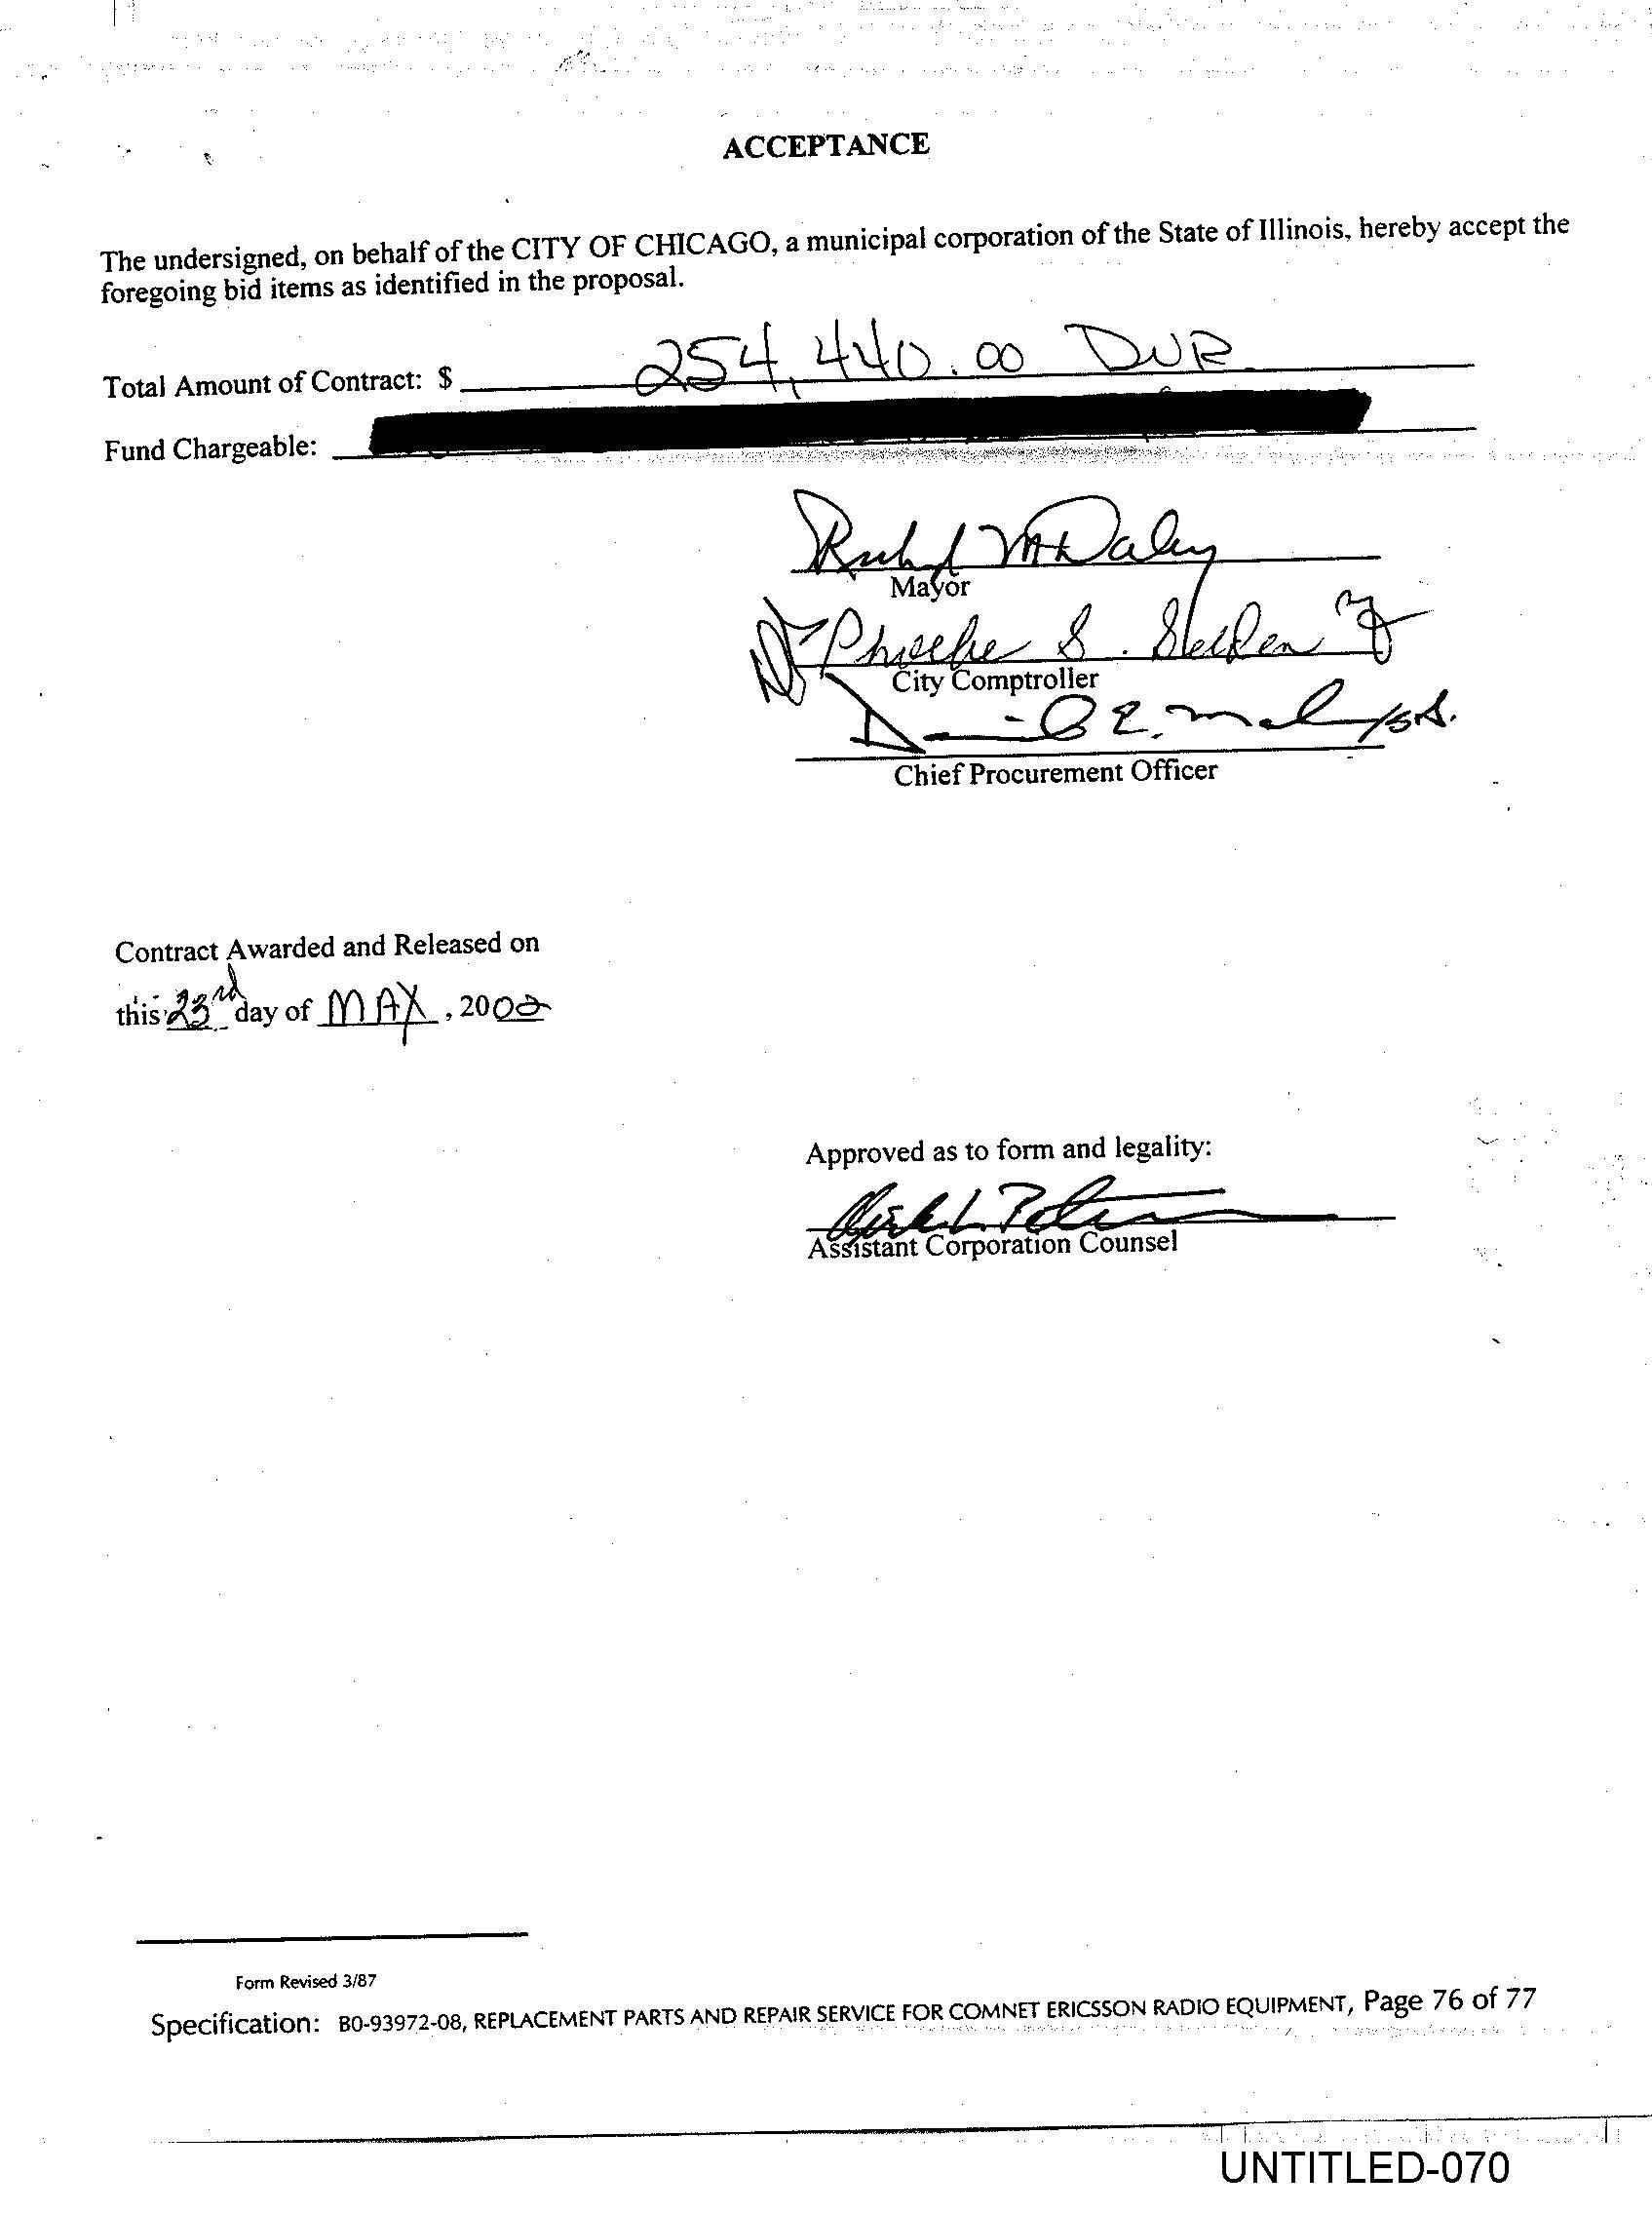 ACCEPTANCE
The undersigned, on behalf of the CITY OF CHICAGO, a municipal corporation of the State of Illinois, hereby accept the
foregoing bid items as identified in the proposal.
Total Amount of Contract: $ 254,440.00 DUR
Fund Chargeable:
Richard M Daley
Mayor
Phoebe S. Selden
City Comptroller
Chief Procurement Officer
Contract Awarded and Released on
this 23rd day of MAY, 2002
Approved as to form and legality:
Assistant Corporation Counsel
Form Revised 3/87
Specification: B0-93972-08, REPLACEMENT PARTS AND REPAIR SERVICE FOR COMNET ERICSSON RADIO EQUIPMENT, Page 76 of 77
UNTITLED-070